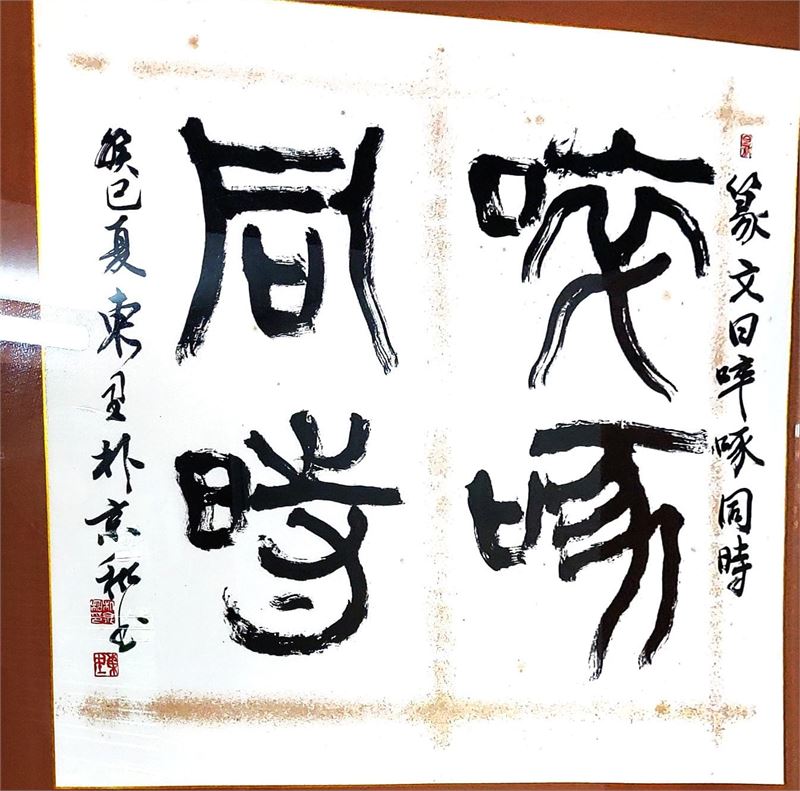 篆文曰啐啄同時
啐啄
同時
癸巳夏東里朴京和書